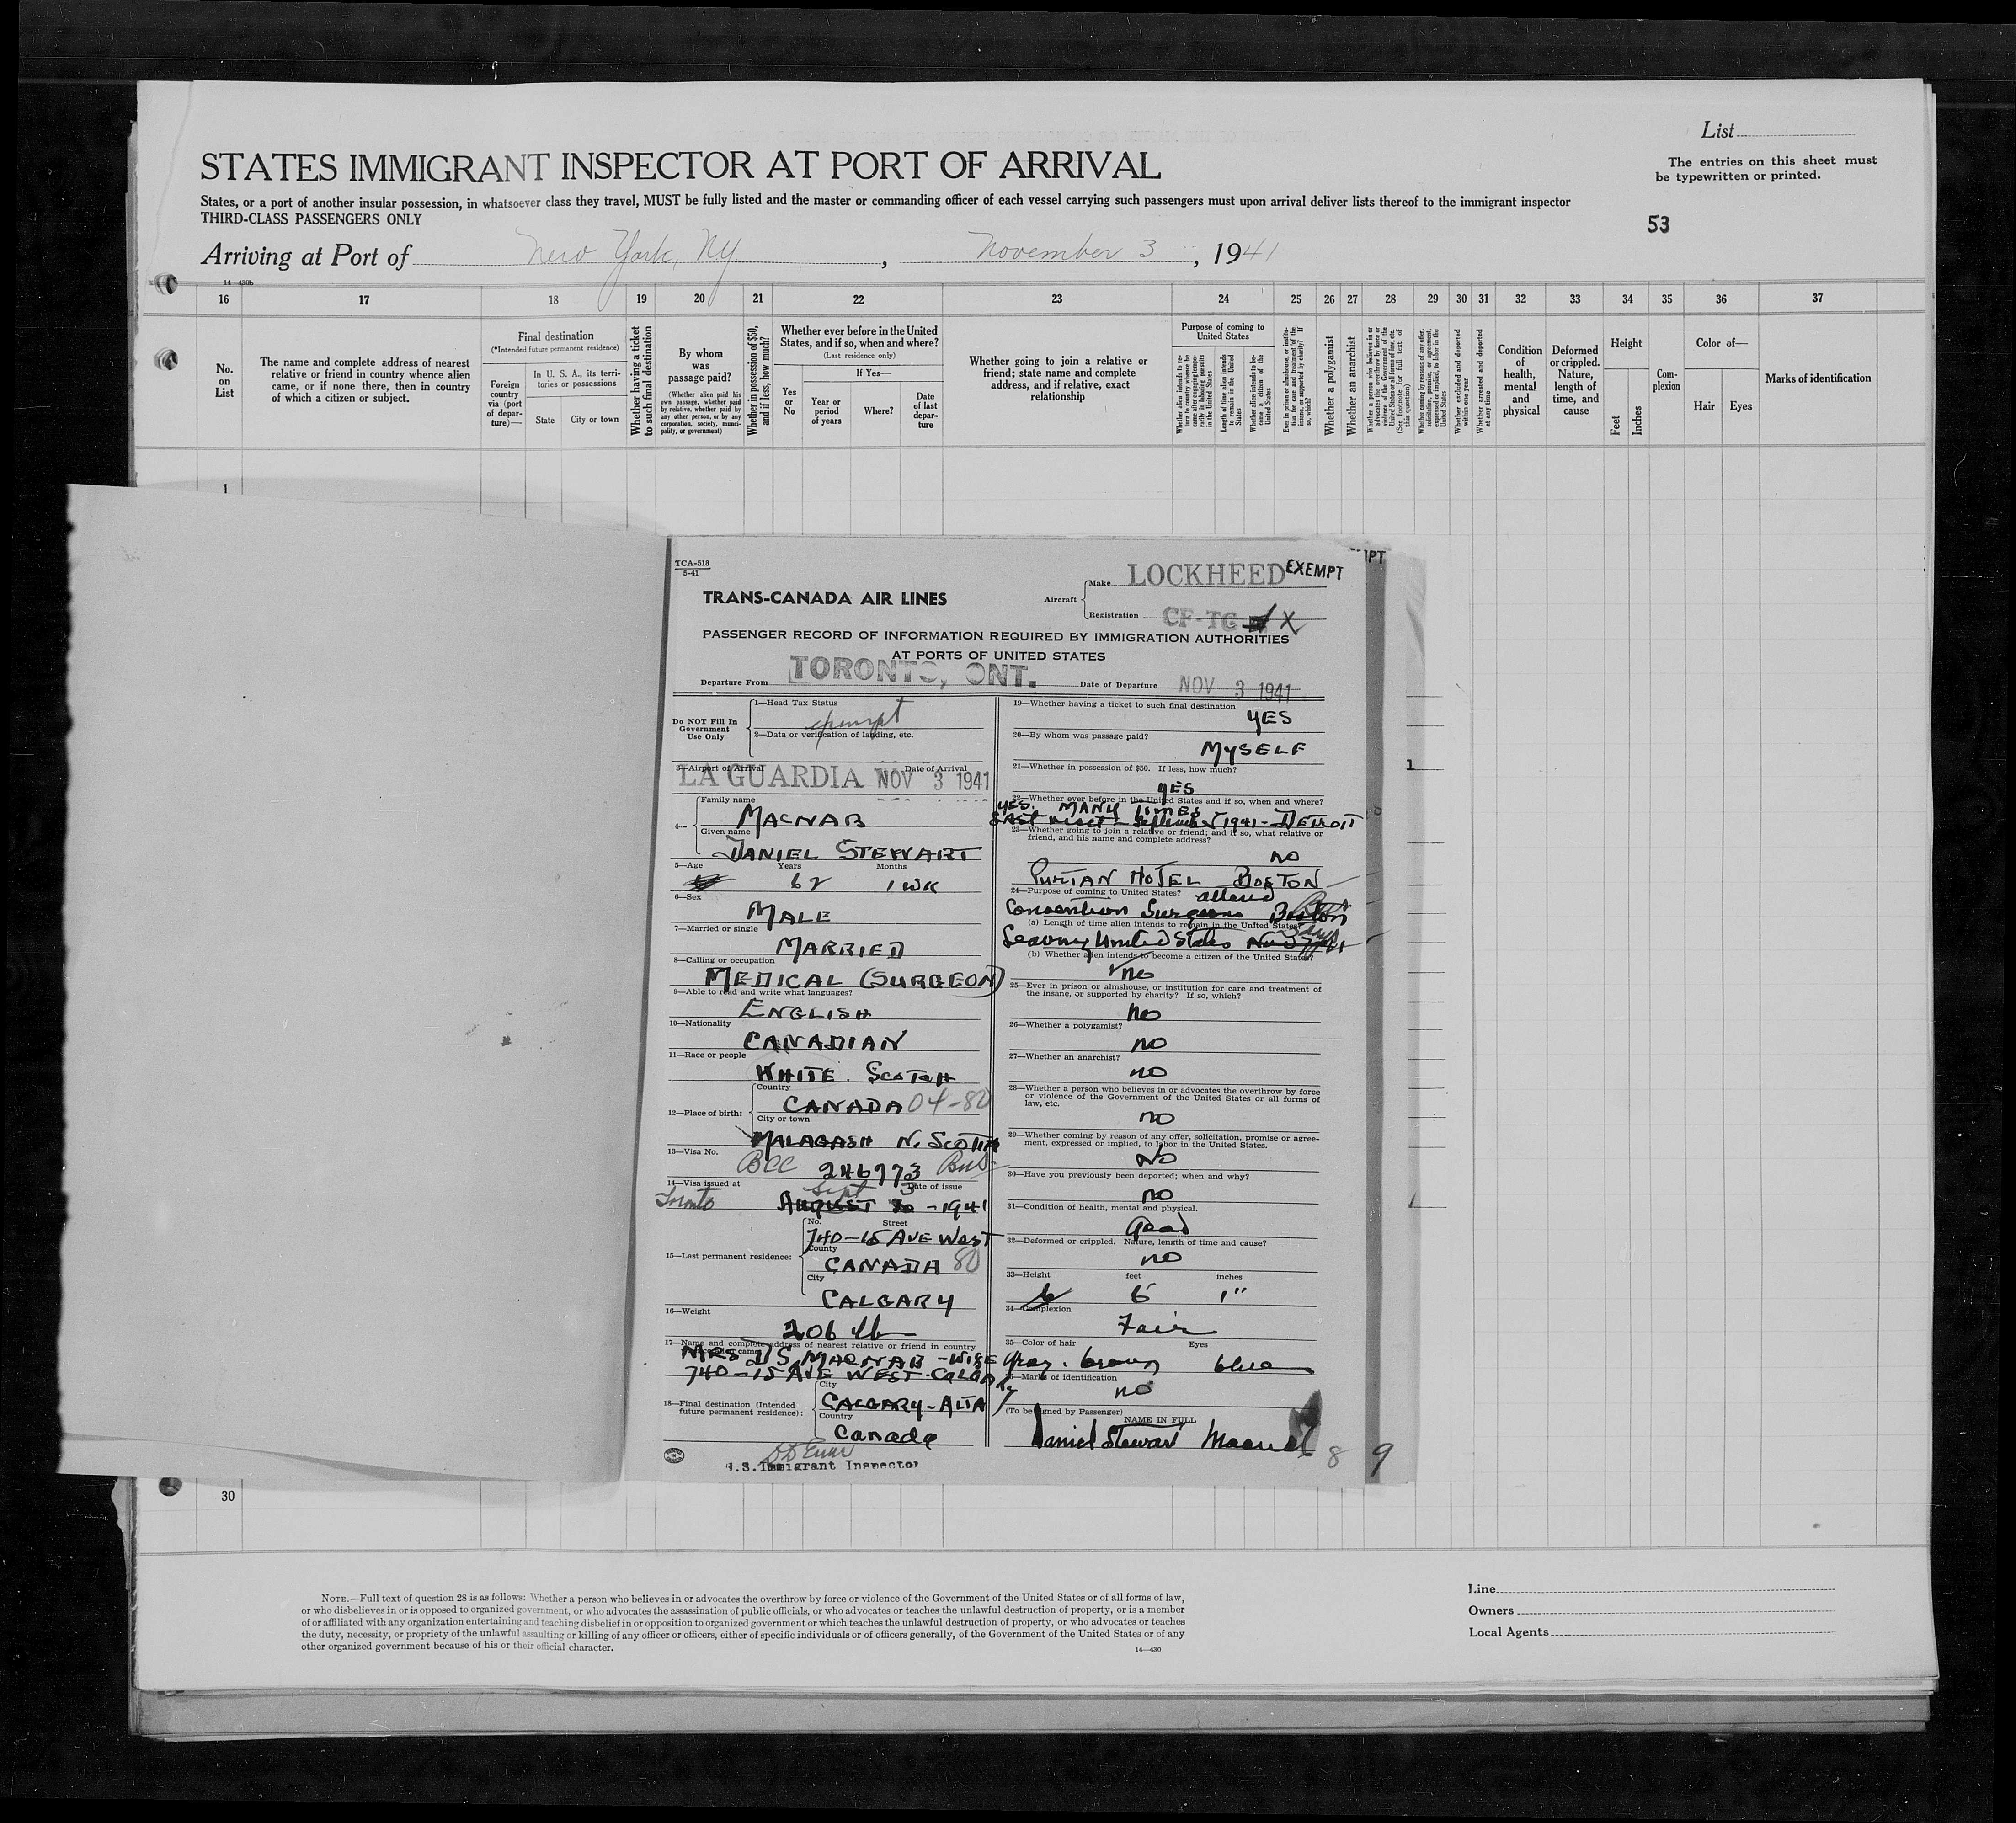 List
The entries on this sheet must
be typewritten or printed.
53
STATES IMMIGRANT INSPECTOR AT PORT OF ARRIVAL
States, or a port of another insular possession, in whatsoever class they travel, MUST be fully listed and the master or commanding officer of each vessel carrying such passengers must upon arrival deliver lists thereof to the immigrant inspector
THIRD-CLASS PASSENGERS ONLY
Arriving at Port of New York, NY, November 3, 1941
14—430b
16 17 18 19 20 21 22 23 24 25 26 27 28 29 30 31 32 33 34 35 36 37
No. on List
The name and complete address of nearest relative or friend in country whence alien came, or if none there, then in country of which a citizen or subject.
Final destination
(*Intended future permanent residence)
Foreign country via (port of departure)—
In U. S. A., its territories or possessions
State City or town
Whether having a ticket to such final destination
By whom was passage paid?
(Whether alien paid his own passage, whether paid by relative, whether paid by any other person, or by any corporation, society, municipality, or government)
Whether in possession of $50, and if less, how much?
Whether ever before in the United States, and if so, when and where?
(Last residence only)
Yes or No
If Yes—
Year or period of years
Where?
Date of last departure
Whether going to join a relative or friend; state name and complete address, and if relative, exact relationship
Purpose of coming to United States
Whether alien intends to return to country whence he came after engaging temporarily in laboring pursuits in the United States
Length of time alien intends to remain in the United States
Whether alien intends to become a citizen of the United States
Ever in prison or almshouse, or institution for care and treatment of the insane, or supported by charity? If so, which?
Whether a polygamist
Whether an anarchist
Whether a person who believes in or advocates the overthrow by force or violence of the Government of the United States or all forms of law, etc. (See footnote for full text of this question)
Whether coming by reasons of any offer, solicitation, promise, or agreement, expressed or implied, to labor in the United States
Whether excluded and deported within one year
Whether arrested and deported at any time
Condition of health, mental and physical
Deformed or crippled. Nature, length of time, and cause
Height
Feet Inches
Complexion
Color of—
Hair Eyes
Marks of identification
1
TCA-518
5-41
TRANS-CANADA AIR LINES
Aircraft
Make LOCKHEED
EXEMPT
Registration CF-TC X
PASSENGER RECORD OF INFORMATION REQUIRED BY IMMIGRATION AUTHORITIES
AT PORTS OF UNITED STATES
Departure From TORONTO, ONT. Date of Departure NOV 3 1941
Do NOT Fill In Government Use Only
1—Head Tax Status
exempt
2—Data or verification of landing, etc.
3—Airport of Arrival Date of Arrival
LA GUARDIA NOV 3 1941
4—
Family name
MACNAB
Given name
DANIEL STEWART
5—Age Years Months
62 1 WK
6—Sex
MALE
7—Married or single
MARRIED
8—Calling or occupation
MEDICAL (SURGEON)
9—Able to read and write what languages?
ENGLISH
10—Nationality
CANADIAN
11—Race or people
WHITE. SCOTCH
12—Place of birth:
Country
CANADA 04-80
City or town
MALAGASH N. SCOTIA
13—Visa No.
BCC 246773
14—Visa issued at Date of issue
Toronto Sept 3
AUGUST 30 - 1941
15—Last permanent residence:
No. Street
740-15 AVE West
County
CANADA 80
City
CALGARY
16—Weight
206 lb
17—Name and complete address of nearest relative or friend in country
MRS D S MACNAB - WIFE
740-15 AVE WEST. CALGARY
18—Final destination (Intended future permanent residence):
City
CALGARY-ALTA
Country
Canada
U.S. Immigrant Inspector
19—Whether having a ticket to such final destination
YES
20—By whom was passage paid?
MYSELF
21—Whether in possession of $50. If less, how much?
YES
22—Whether ever before in the United States and if so, when and where?
YES. MANY TIMES
Last visit - September 1941 - DETROIT
23—Whether going to join a relative or friend; and if so, what relative or friend, and his name and complete address?
NO
PURITAN HOTEL BOSTON
24—Purpose of coming to United States? attend
Convention Surgeons Boston
(a) Length of time alien intends to remain in the United States?
Leaving United States
(b) Whether alien intends to become a citizen of the United States?
no
25—Ever in prison or almshouse, or institution for care and treatment of the insane, or supported by charity? If so, which?
no
26—Whether a polygamist?
no
27—Whether an anarchist?
no
28—Whether a person who believes in or advocates the overthrow by force or violence of the Government of the United States or all forms of law, etc.
no
29—Whether coming by reason of any offer, solicitation, promise or agreement, expressed or implied, to labor in the United States.
No
30—Have you previously been deported; when and why?
no
31—Condition of health, mental and physical.
Good
32—Deformed or crippled. Nature, length of time and cause?
no
33—Height feet inches
6 1"
34—Complexion
Fair
35—Color of hair Eyes
Gray. brown blue
36—Marks of identification
no
(To be signed by Passenger)
NAME IN FULL
Daniel Stewart Macnab
8 9
1
30
NOTE.—Full text of question 28 is as follows: Whether a person who believes in or advocates the overthrow by force or violence of the Government of the United States or of all forms of law,
or who disbelieves in or is opposed to organized government, or who advocates the assassination of public officials, or who advocates or teaches the unlawful destruction of property, or is a member
of or affiliated with any organization entertaining and teaching disbelief in or opposition to organized government or which teaches the unlawful destruction of property, or who advocates or teaches
the duty, necessity, or propriety of the unlawful assaulting or killing of any officer or officers, either of specific individuals or of officers generally, of the Government of the United States or of any
other organized government because of his or their official character.
14—430
Line
Owners
Local Agents